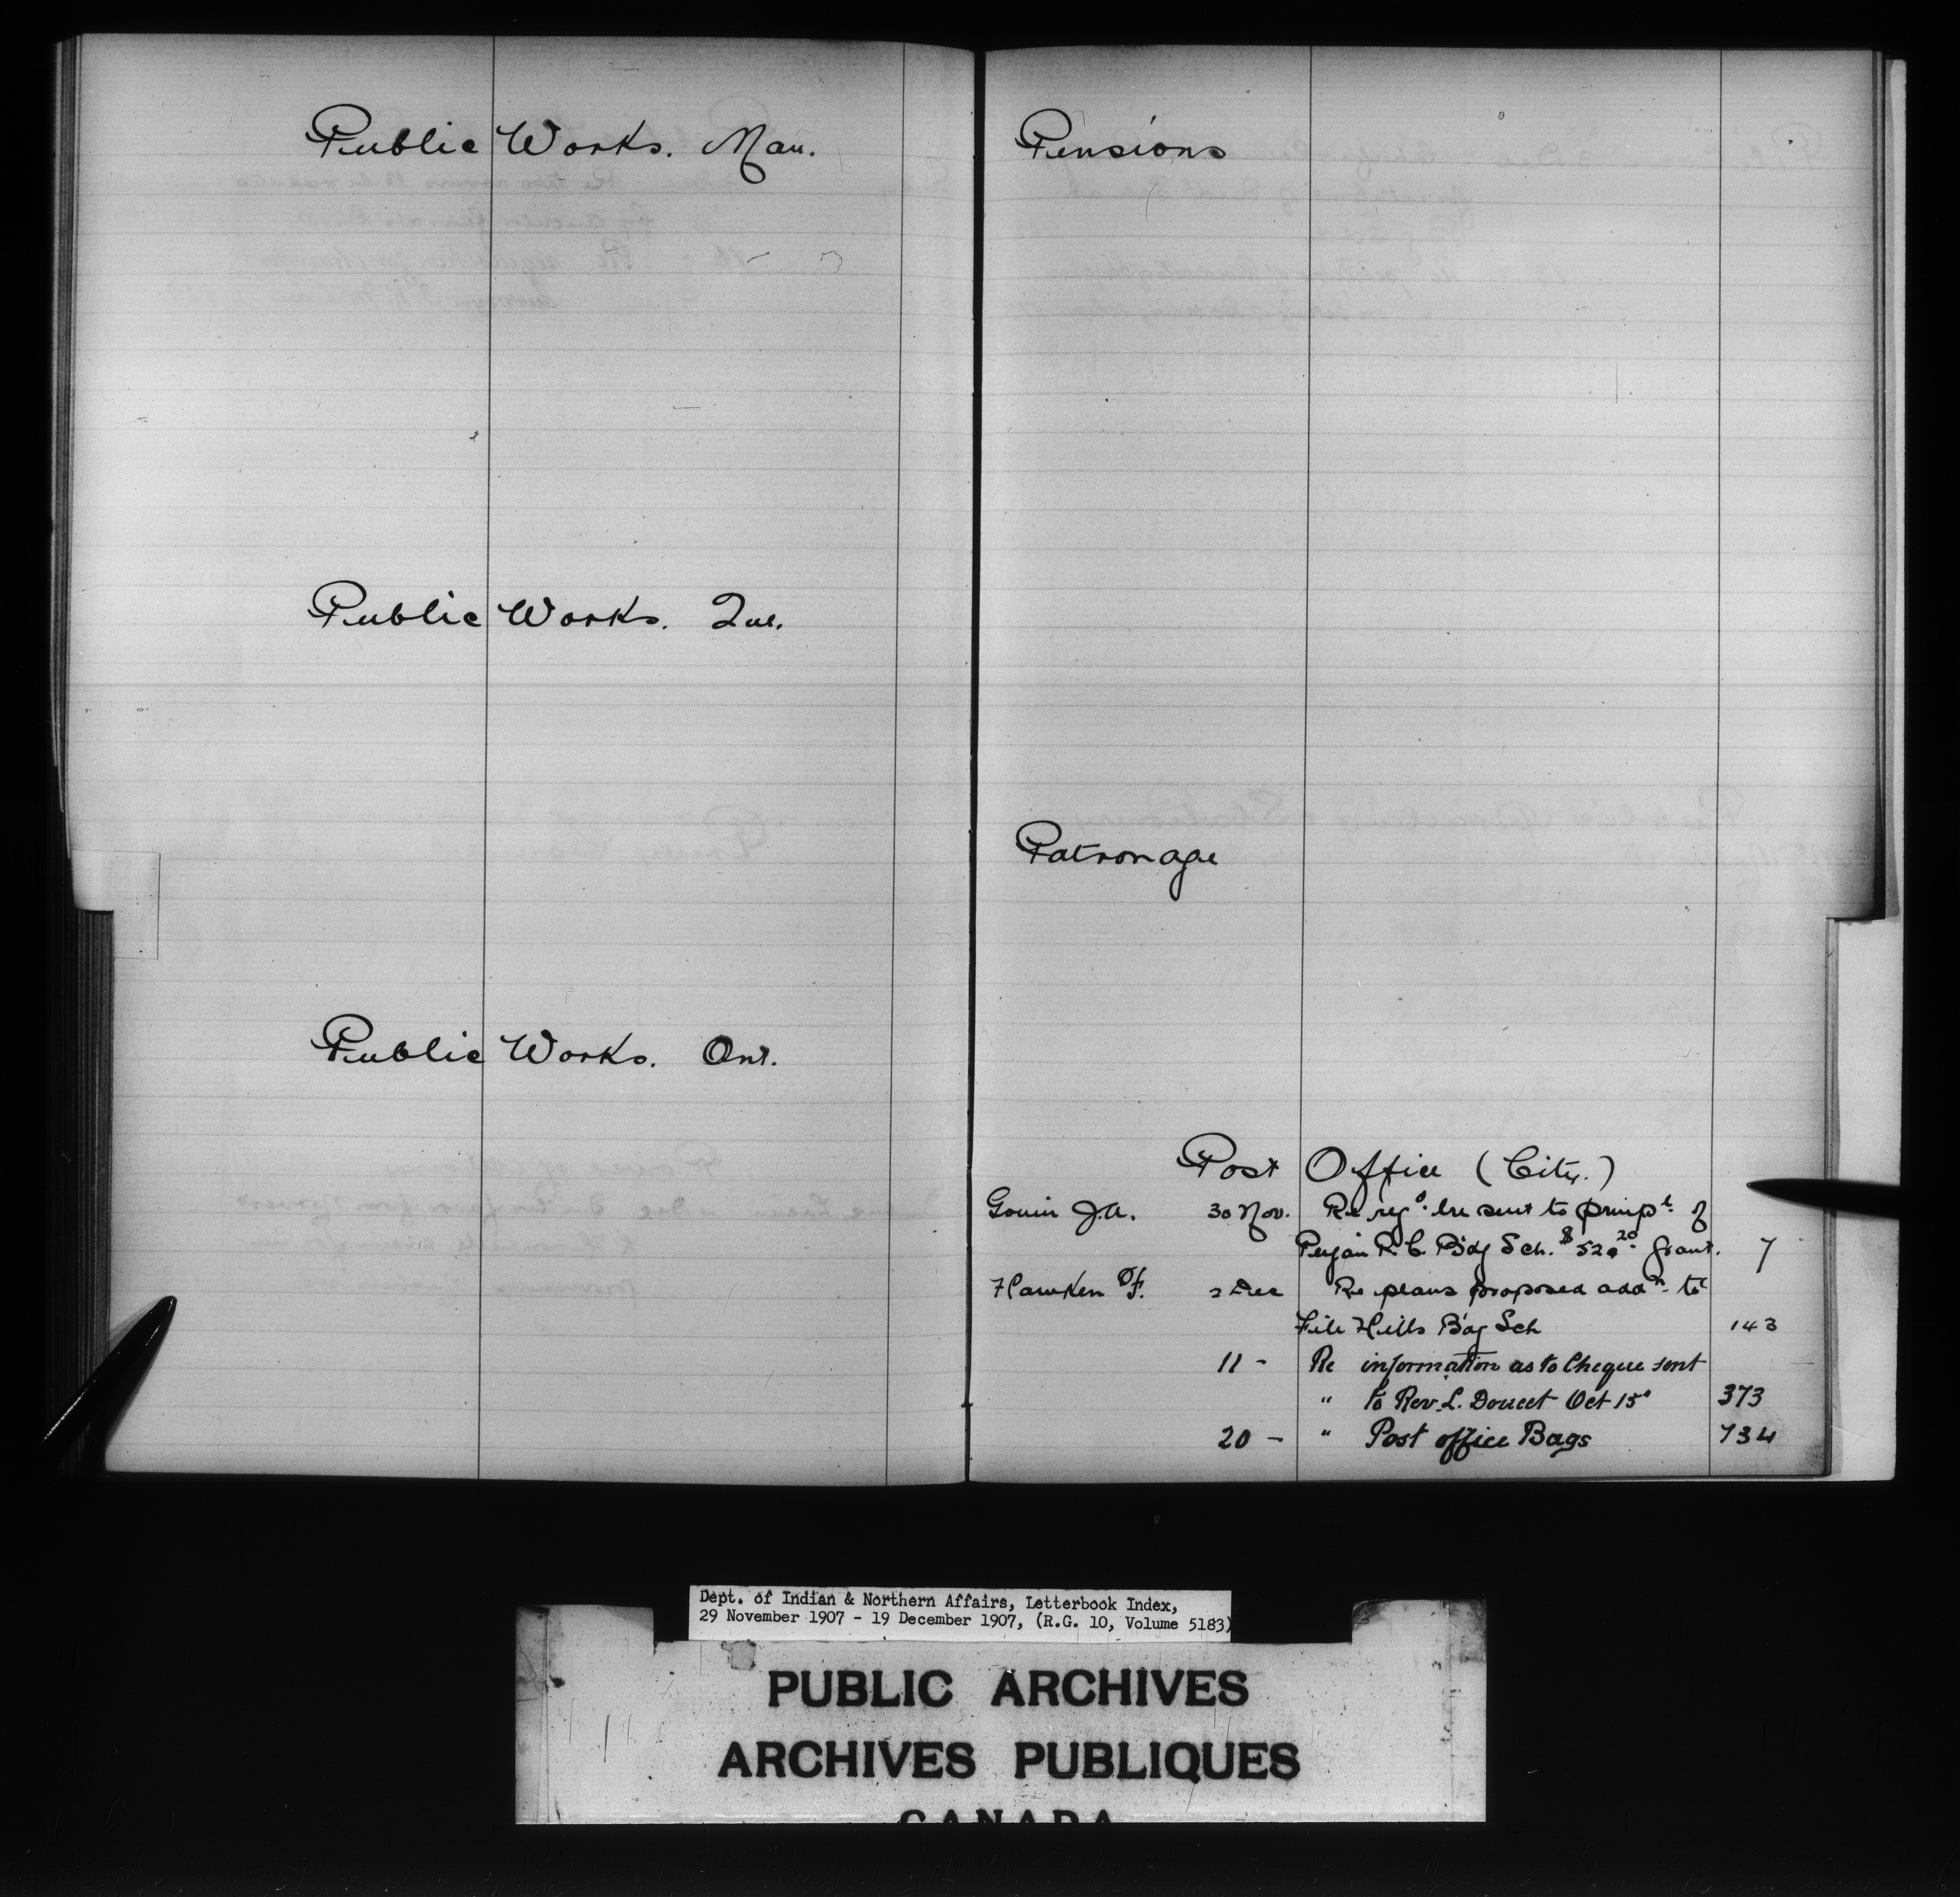 Public Works. Man.
Public Works. Que.
Public Works. Ont.
Pensions
Patronage
Post Office (City.)
Gouin J.A. 30 Nov. Re reg^d. ltre sent to princp^l. of
R.C. B'dg Sch. $52 20 grant. 7
Hawken F. 2 Dec Re plans proposed add^n. to
File Hills B'dg Sch 143
11 - Re information as to Cheque sent
" to Rev. L. Doucet Oct 15° 373
20 - " Post office Bags 734
Dept. of Indian & Northern Affairs, Letterbook Index,
29 November 1907 - 19 December 1907, (R.G. 10, Volume 5183)
PUBLIC ARCHIVES
ARCHIVES PUBLIQUES
CANADA